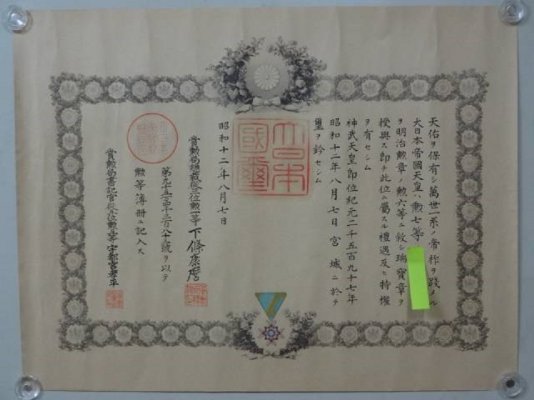 天佑ヲ保有シ萬世一系ノ帝祚ヲ踐メル
大日本帝國天皇ハ勲七等
ヲ明治勲章ノ勲六等ニ叙シ瑞寶章ヲ
授與ス即チ此位ニ屬スル禮遇及ヒ特權
ヲ有セシム
神武天皇即位紀元二千五百九十七年
昭和十二年八月七日宮城ニ於テ
璽ヲ鈐セシム
大日本
國璽
昭和十二年八月七日
賞勲局總裁 勲一等下條康麿
ヲ以テ
勲等簿冊ニ記入ス
賞勲局書記官